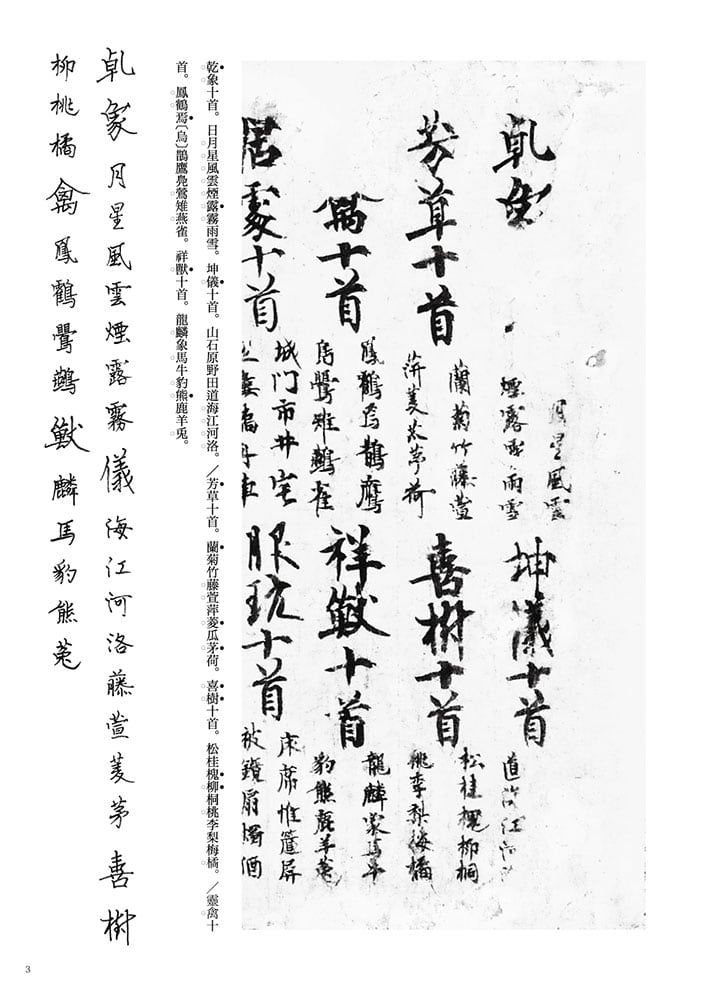 乾象
月星風雲
煙露霧雨雪
坤儀十首
道海江河
芳草十首
蘭菊竹藤萱
萍菱瓜茅荷
喜樹十首
松桂槐柳桐
桃李梨梅橘
禽十首
鳳鶴烏鵲鷹
鳧鶯雉鷰雀
祥獣十首
龍麟象馬牛
豹熊鹿羊菟
居處十首
城门市井宅
服玩十首
床席帷簾屏
被鏡扇燭酒
乾象十首。日月星風雲煙露霧雨雪。坤儀十首。山石原野田道海江河洛。／芳草十首。蘭菊竹藤萱萍菱瓜茅荷。喜樹十首。松桂槐柳桐桃李梨梅橘。／靈禽十
首。鳳鶴焉〔烏〕鵲鷹鳧鶯雉燕雀。祥獣十首。龍麟象馬牛豹熊鹿羊兎。
乾象月星風雲煙露霧儀海江河洛藤萱菱茅喜樹
柳桃橘禽鳳鶴鶯鷰獣麟馬豹熊菟
3